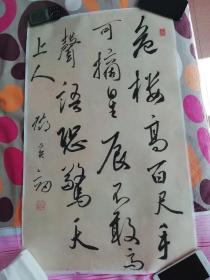 危楼高百尺手
可摘星辰不敢高
聲語恐驚天
上人